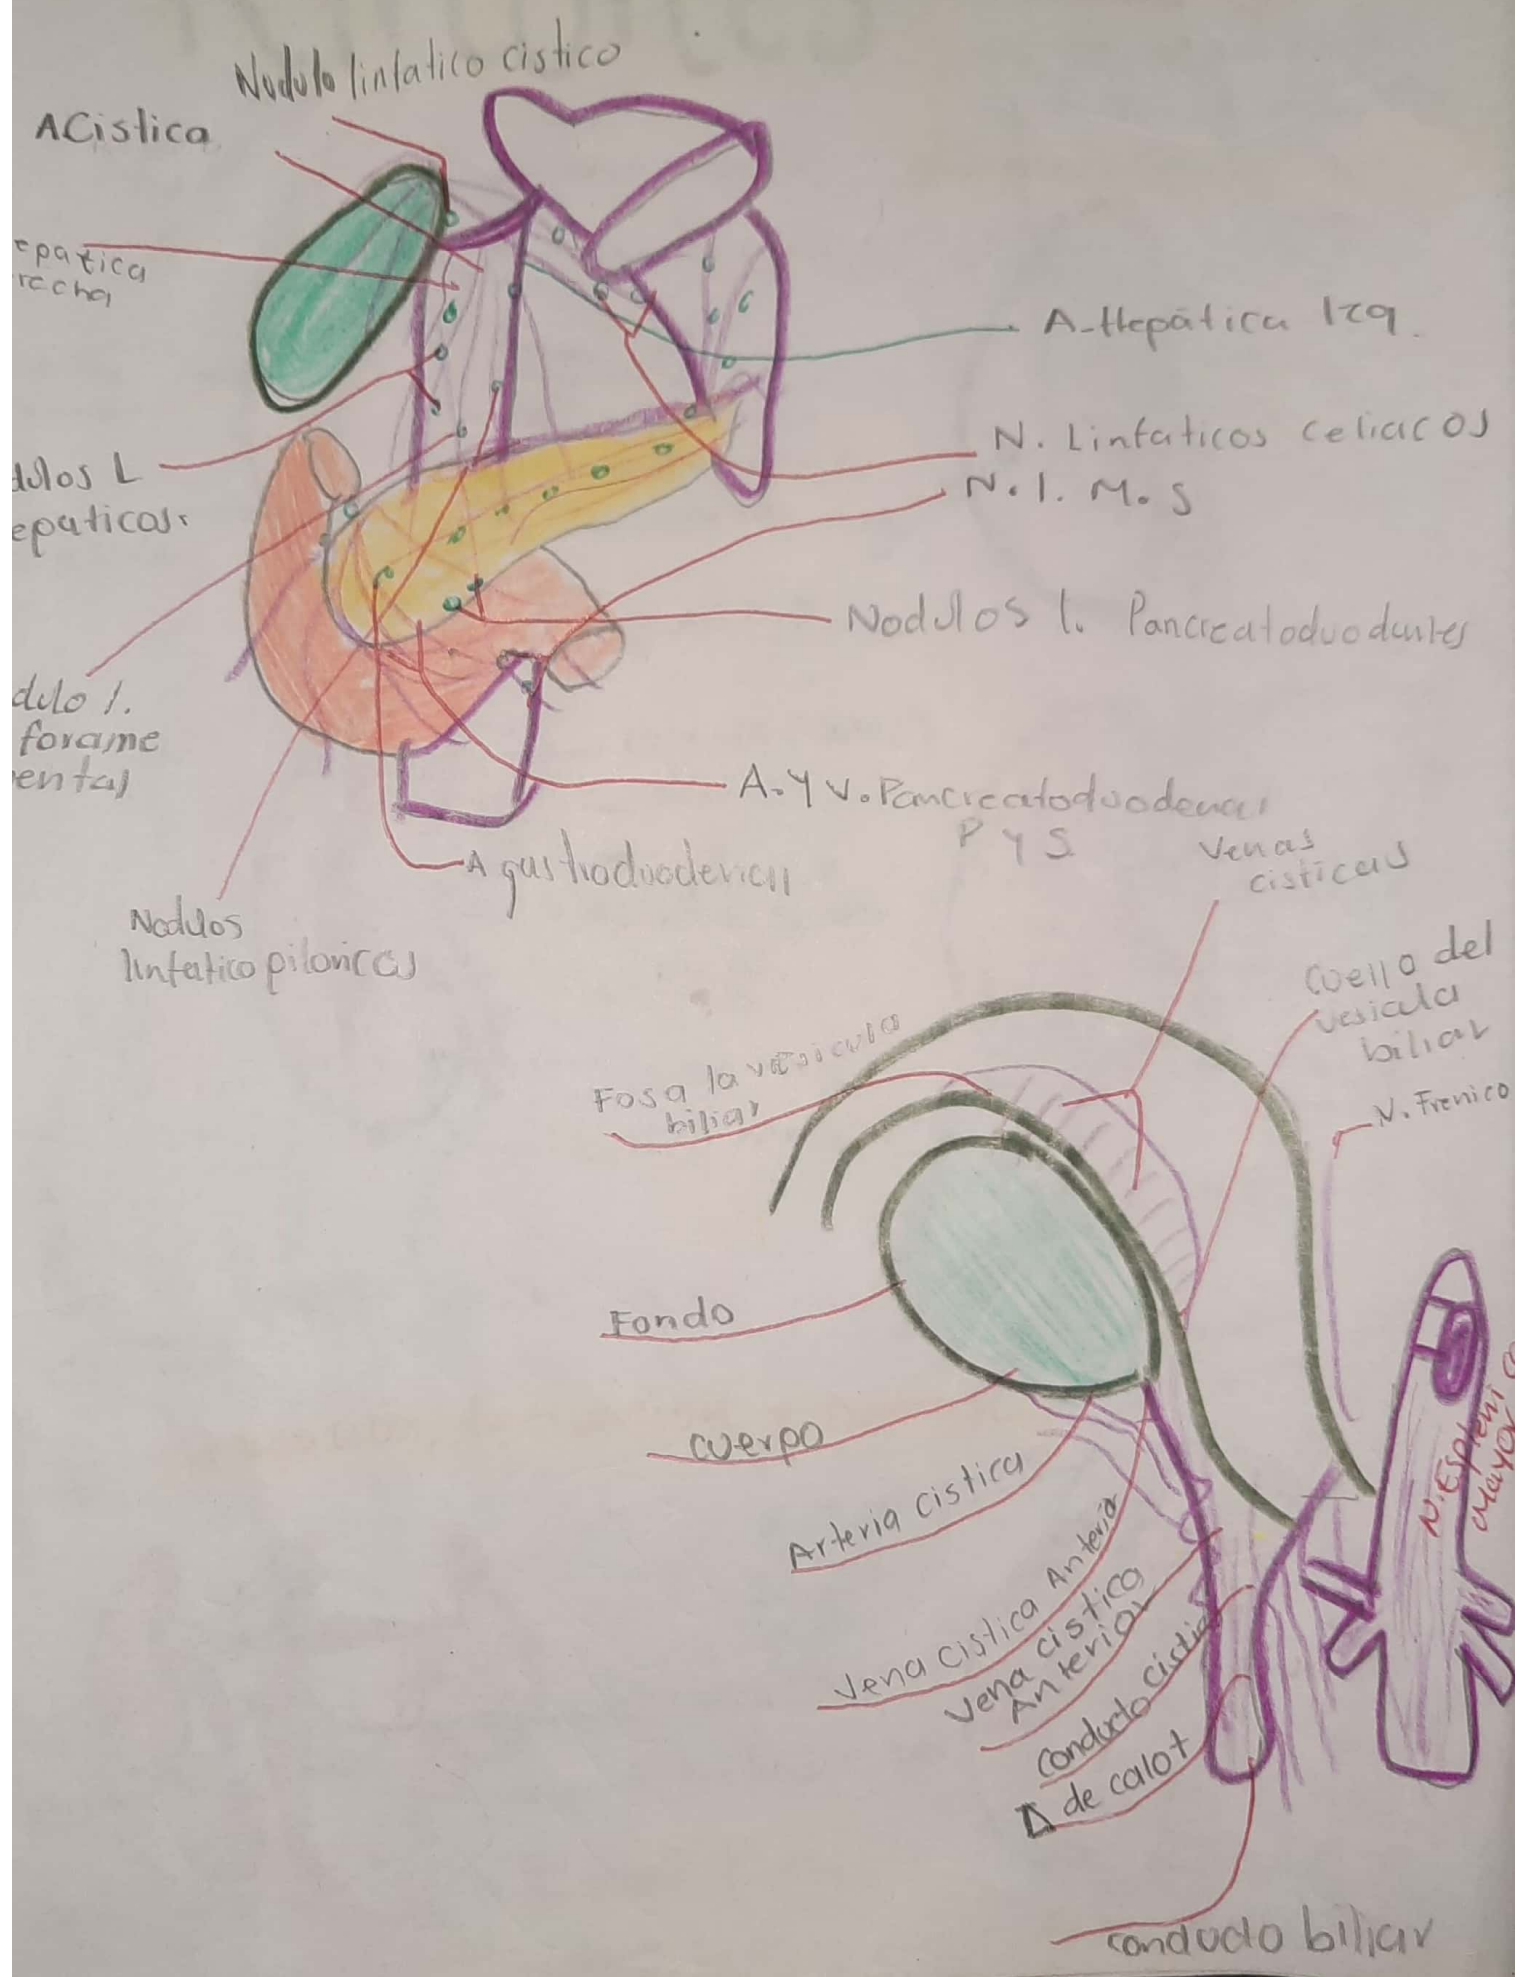 Nodulo linfatico cistico
A Cistica
epatica
recha
A-Hepática Izq.
N. Linfaticos celiacos
N. l. M. S
dulos L
epaticos.
Nodulos l. Pancreatoduodenales
dulo l.
forame
ental
A. y V. Pancreatoduodenal
P y S
A gastroduodenal
Nodulos
linfatico piloricos
Venas
cisticas
Cuello del
vesicula
biliar
Fosa la vesicula
biliar
N. Frenico
Fondo
cuerpo
Arteria cistica
Vena cistica Anterio
Vena cistica
Anterior
conducto cistico
Δ de calot
N. Espleni c
mayor
conducto biliar